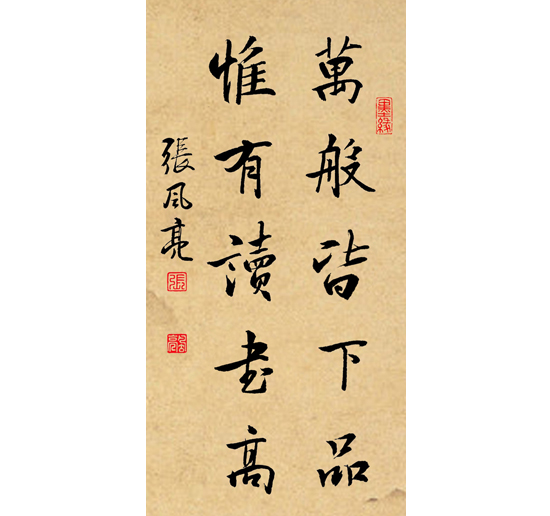 萬般皆下品
惟有讀书高
張风亮